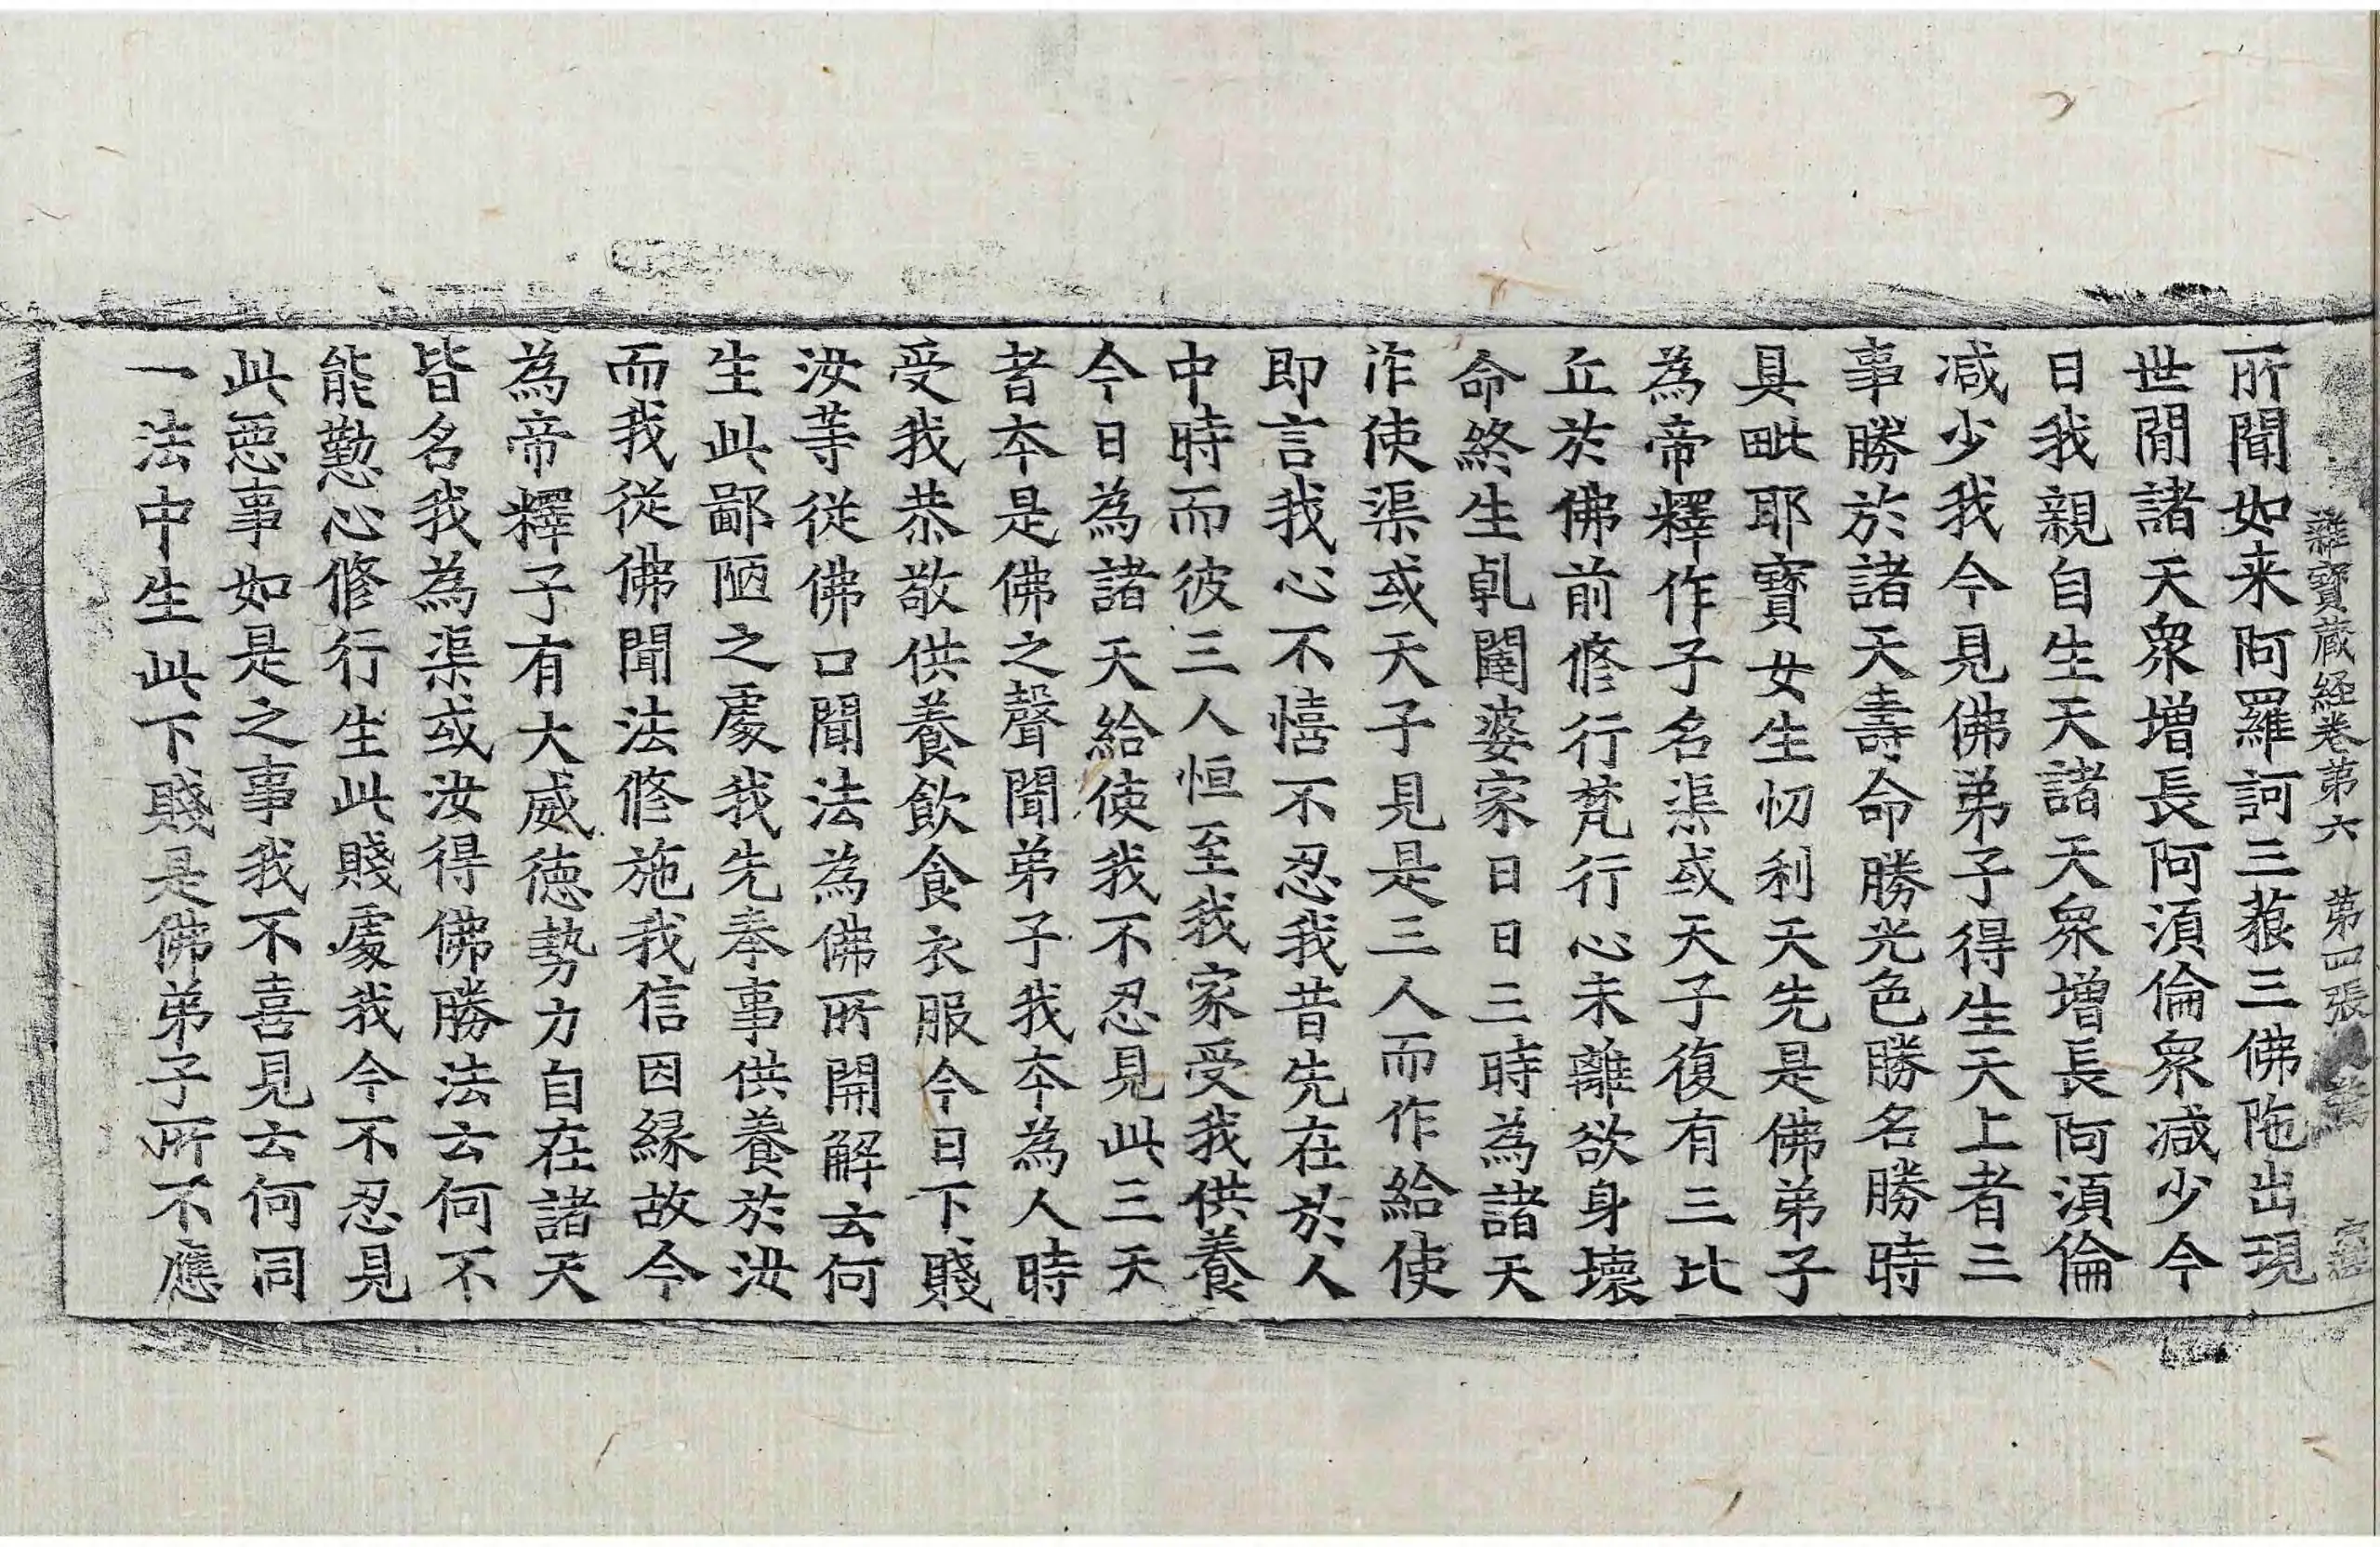 雜寶蔵経卷第六 第四張
所聞如来阿羅訶三藐三佛陁出現
世間諸天衆增長阿湏倫衆减少今
日我親自生天諸天衆增長阿湏倫
减少我今見佛弟子得生天上者三
事勝於諸天壽命勝光色勝名勝時
具毗耶寳女生忉利天先是佛弟子
為帝釋作子名渠或天子復有三比
丘於佛前修行梵行心未離欲身壞
命終生乹闥婆家日日三時為諸天
作使渠或天子見是三人而作給使
即言我心不憘不忍我昔先在於人
中時而彼三人恒至我家受我供養
今日為諸天給使我不忍見此三天
者本是佛之聲聞弟子我本為人時
受我恭敬供養飲食衣服今日下賤
汝等從佛口聞法為佛所開解云何
生此鄙陋之處我先奉事供養於汝
而我從佛聞法修施我信因縁故今
為帝釋子有大威德勢力自在諸天
皆名我為渠或汝得佛勝法云何不
能懃心修行生此賤處我今不忍見
此惡事如是之事我不喜見云何同
一法中生此下賤是佛弟子所不應